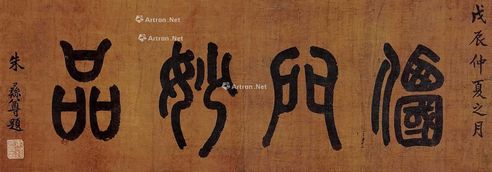 戊辰仲夏之月
妙品
朱彝尊題
Artron.Net
Artron.Net
Artron.Net